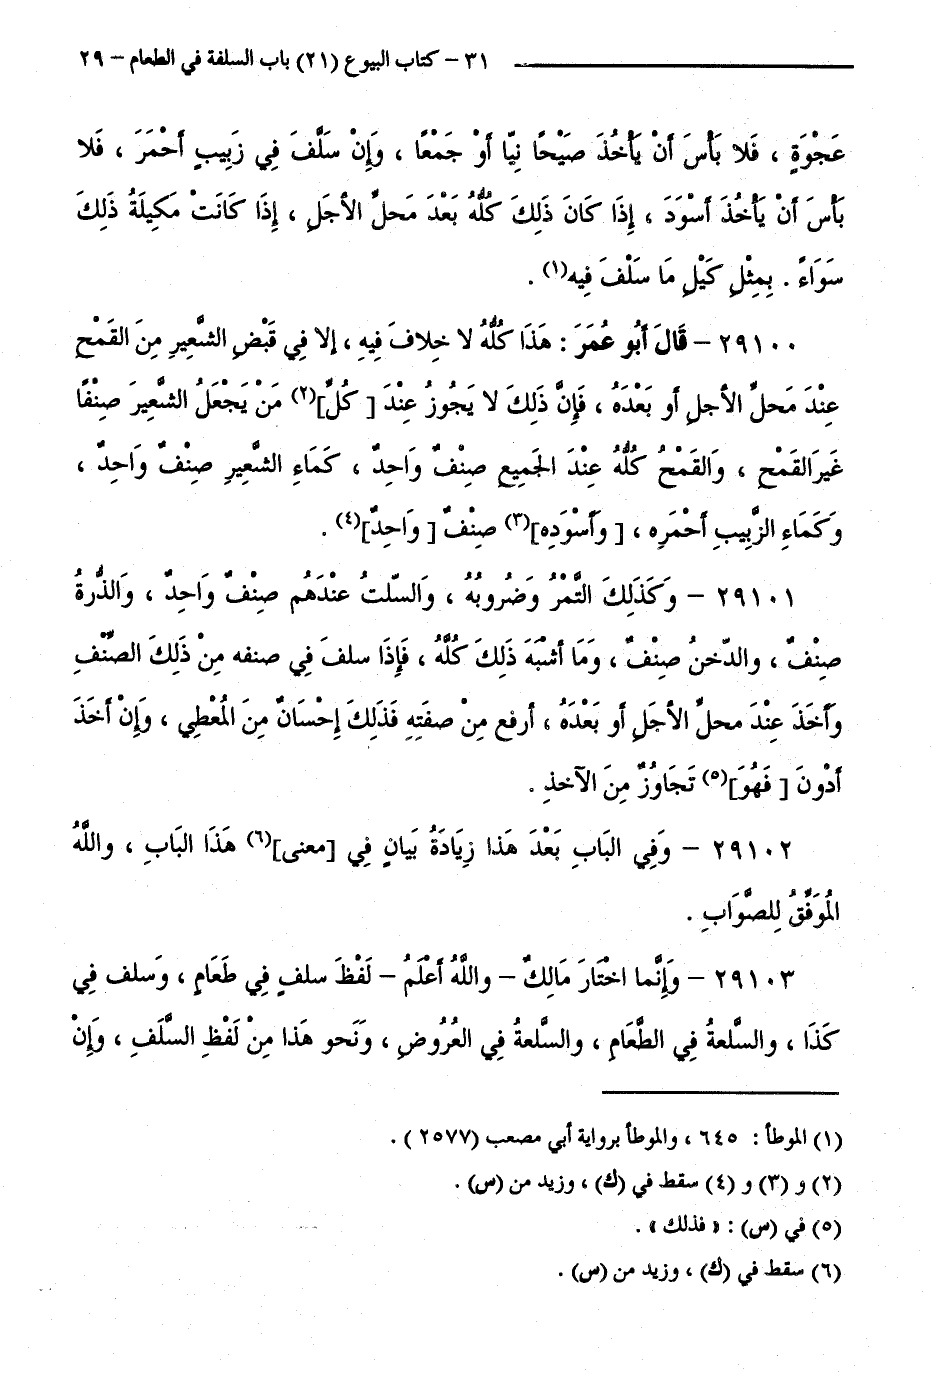 ٣١ – كتاب البيوع (٢١) باب السلفة في الطعام – ٢٩
عَجْوَةٍ ، فَلا بَأْسَ أَنْ يَأْخُذَ صَيْحًا نِيّا أوْ جَمْعًا ، وَإِنْ سَلَّفَ فِي زَبِيبٍ أحْمَرَ ، فَلا
بَأْسَ أَنْ يَأْخُذَ أسْوَدَ ، إِذَا كَانَ ذَلِكَ كُلُّهُ بَعْدَ مَحلِّ الأجَلِ ، إِذَا كَانَتْ مَكِيلَةُ ذَلِكَ
سَوَاءً . بِمِثْلِ كَيْلِ مَا سَلْفَ فِيه(١) .
٢٩١٠٠ – قَالَ أَبُو عُمَرَ : هَذَا كُلُّهُ لا خلافَ فِيهِ ، إلا فِي قَبْضِ الشَّعِيرِ مِنَ القَمْحِ
عِنْدَ مَحلِّ الأجلِ أو بَعْدَهُ ، فَإِنَّ ذَلِكَ لا يَجُوزُ عِنْدَ [ كُلِّ](٢) مَنْ يَجْعَلُ الشَّعِيرَ صِنْفًا
غَيرَ القَمْحِ ، وَالقَمْحُ كُلُّهُ عِنْدَ الجَمِيعِ صِنْفٌ وَاحِدٌ ، كَمَاءِ الشَّعِيرِ صِنْفٌ وَاحِدٌ ،
وَكَمَاءِ الزَّبِيبِ أحْمَرِه ، [ وَأسْوَدِه](٣) صِنْفٌ [ وَاحِدٌ](٤) .
٢٩١٠١ – وَكَذَلِكَ التَّمْرُ وَضُرُوبُهُ ، وَالسّلتُ عنْدَهُم صِنْفٌ وَاحِدٌ ، وَالذُّرةُ
صِنْفٌ ، والدّخنُ صِنْفٌ ، وَمَا أشْبَهَ ذَلِكَ كلُّهُ ، فَإِذَا سلفَ فِي صنفه مِنْ ذَلِكَ الصّنْفِ
وأخَذَ عِنْدَ محلِّ الأجَلِ أو بَعْدَهُ ، أرفع مِنْ صفَتِهِ فَذَلِكَ إِحْسَانٌ مِنَ المُعْطِي ، وَإِنْ أخَذَ
أدْونَ [ فَهُوَ](٥) تَجَاوُزٌ مِنَ الآخذِ .
٢٩١٠٢ – وَفِي البَابِ بَعْدَ هَذا زِيَادَةُ بَيَانٍ فِي [معنى](٦) هَذَا البَابِ ، واللَّهُ
المُوَفِّقُ لِلصَّوَابِ .
٢٩١٠٣ – وَإِنَّما اخْتَارَ مَالِكٌ – واللَّهُ أعْلَمُ – لَفْظَ سلفٍ فِي طَعَامٍ ، وَسلف فِي
كَذَا ، والسَّلعةُ فِي الطَّعَامِ ، والسَّلعةُ فِي العُرُوضِ ، وَنَحو هَذا مِنْ لَفْظِ السَّلَفِ ، وَإِنْ
(١) الموطأ : ٦٤٥ ، والموطأ برواية أبي مصعب (٢٥٧٧ ) .
(٢) و (٣) و (٤) سقط في (ك) ، وزيد من (س) .
(٥) في (س) : « فذلك » .
(٦) سقط في (ك) ، وزيد من (س) .